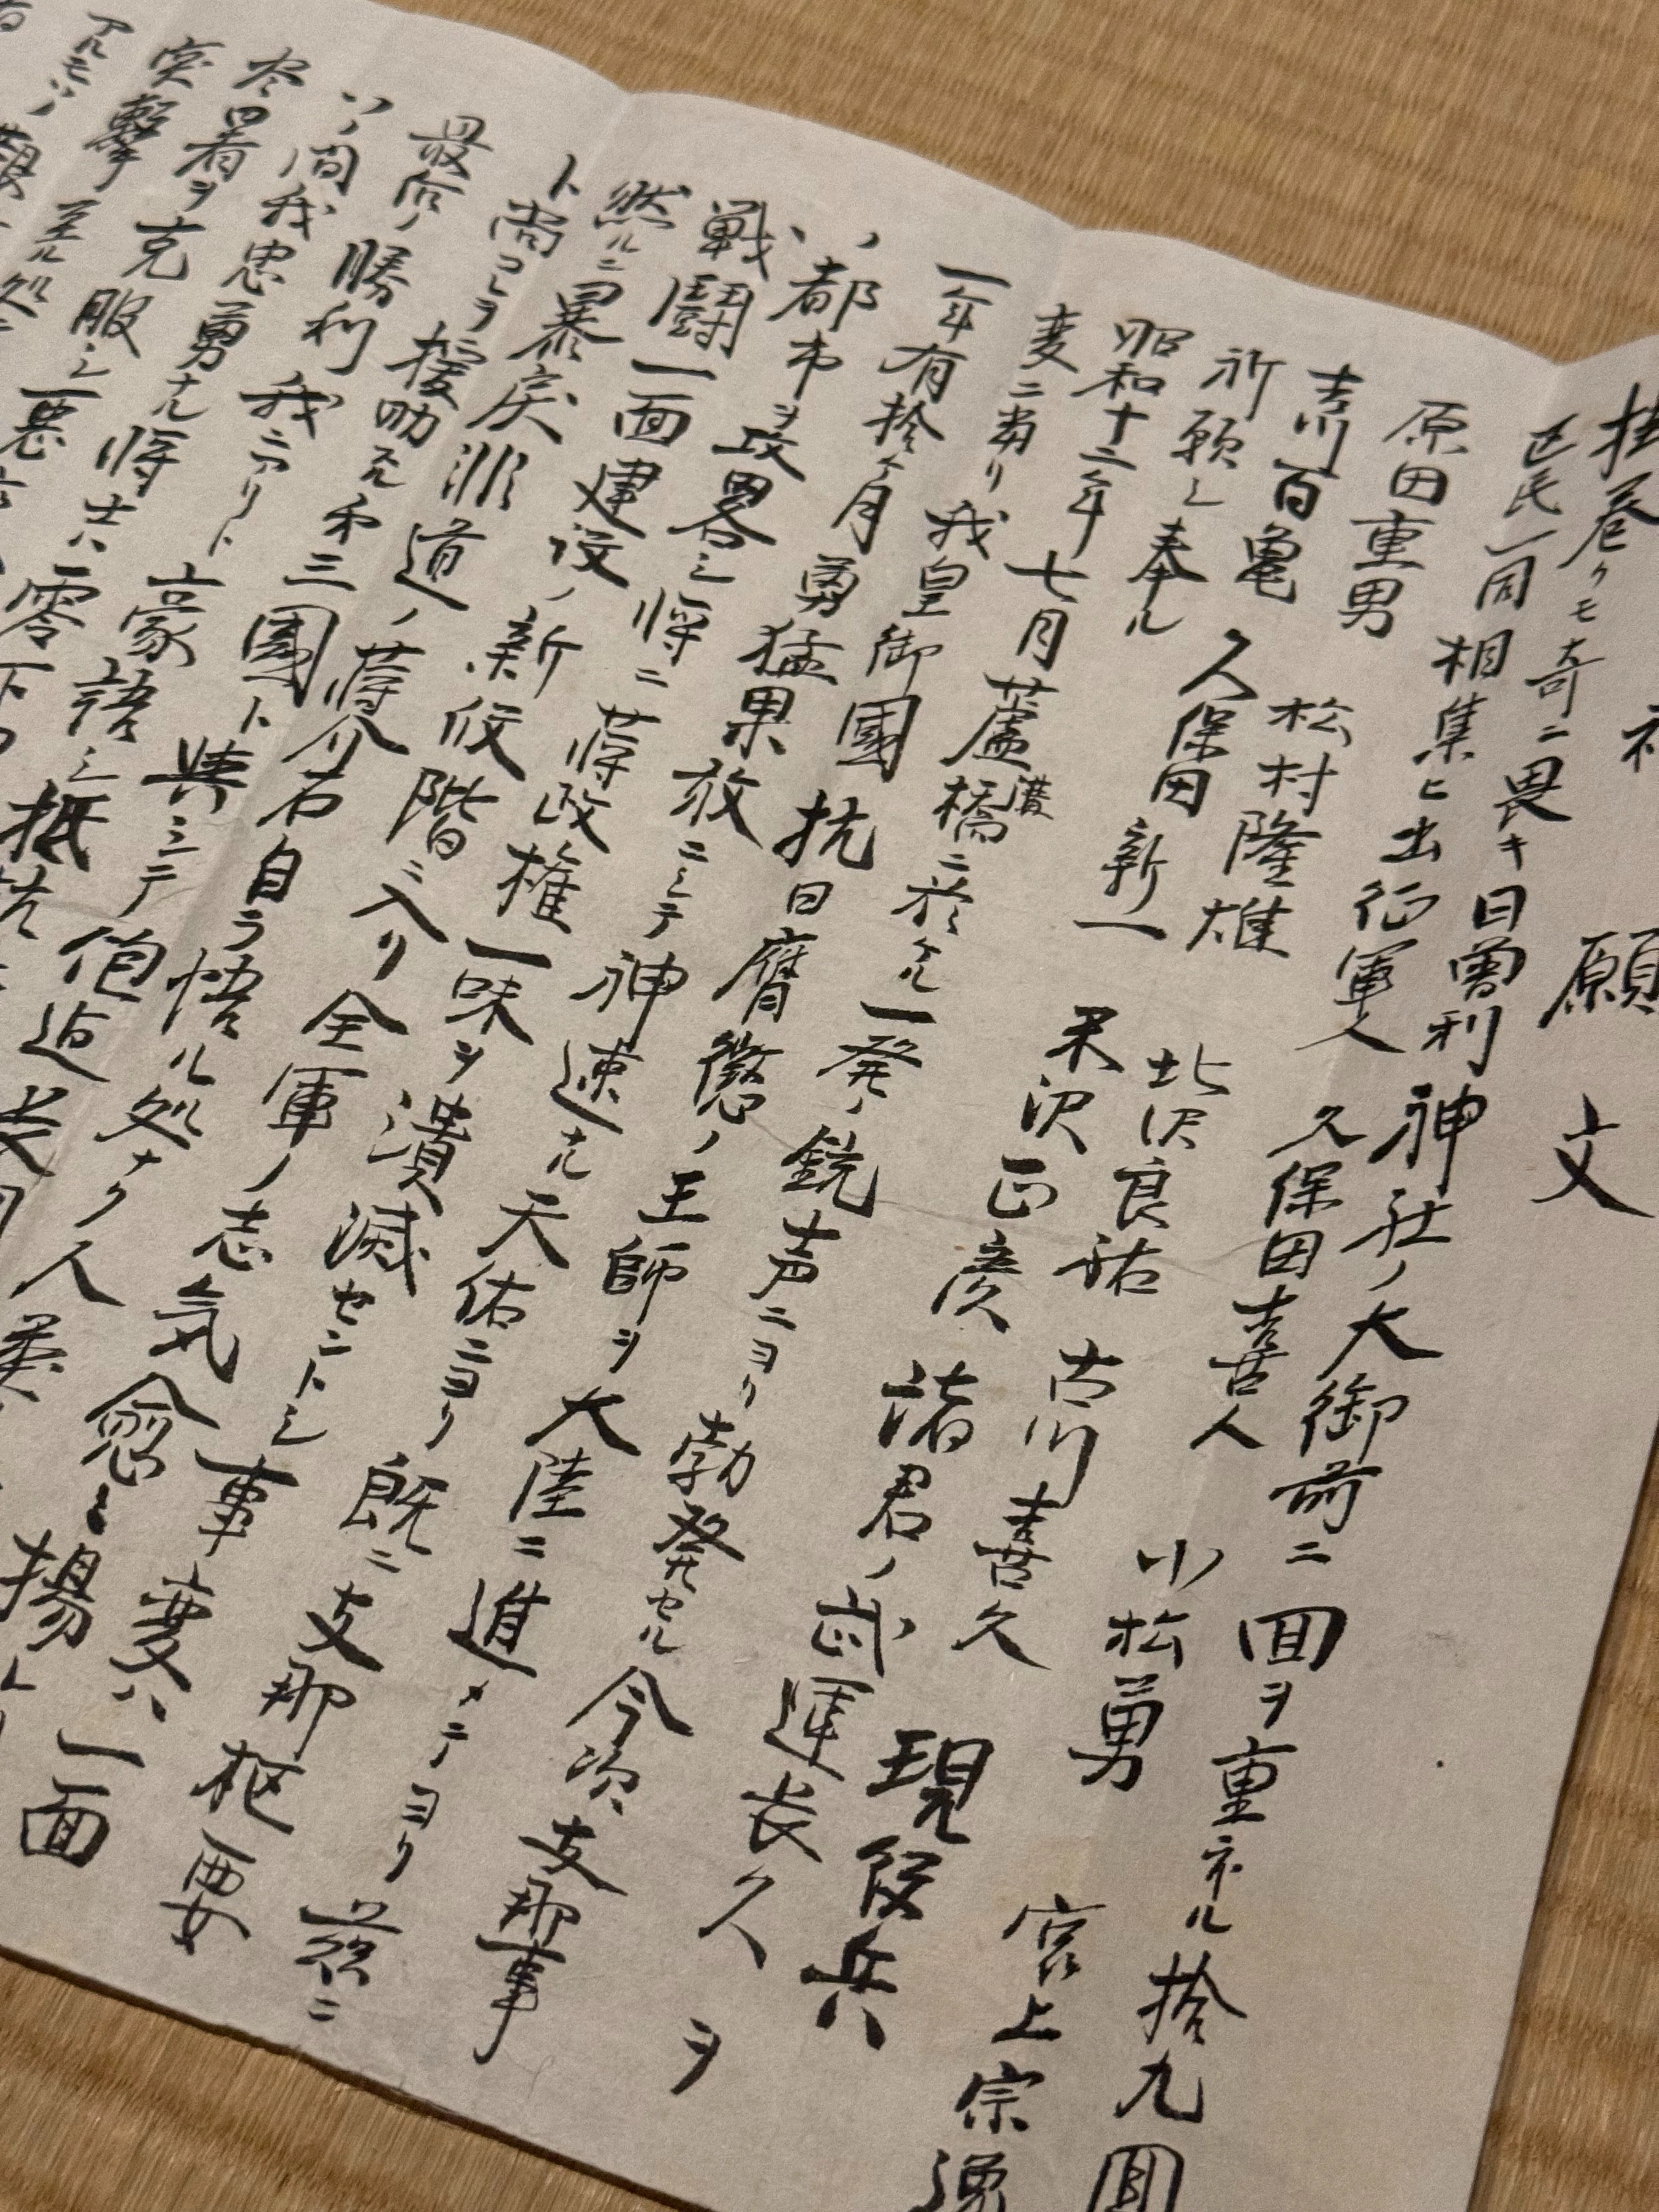 願文
掛巻クモ奇ニ畏キ日曽利神社ノ大御前ニ回ヲ重ネル拾九回
区民一同相集ヒ出征軍人久保田喜人 小松勇 宮上宗
原田重男 松村隆雄 北沢良祐 古川喜久 現役兵
吉川百亀 久保田新一 米沢正彦 諸君ノ武運長久ヲ
祈願シ奉ル
昭和十二年七月蘆溝橋ニ於ケル一発ノ銃声ニヨリ勃発セル今次支那事
変ニ当リ我皇御國抗日膺懲ノ王師ヲ大陸ニ進メテヨリ茲ニ
一年有拾ヶ月勇猛果敢ニシテ神速ナル天佑ニヨリ既ニ支那枢要
ノ都市ヲ攻畧シ将ニ蒋政権一味ヲ潰滅セントシ事変ハ一面
戦闘一面建設ノ新段階ニ入リ全軍ノ志気愈々揚
然ルニ暴戻非道ノ蒋介石自ラ悟ル処ナク人
ト尚コレヲ援助スル第三國ト
最后ノ勝利我ニアリト豪語シ抵抗
ノ間我忠勇ナル将士ハ零下
尽困苦ヲ克服シ悪
突撃至ル処ニ
アルモノ